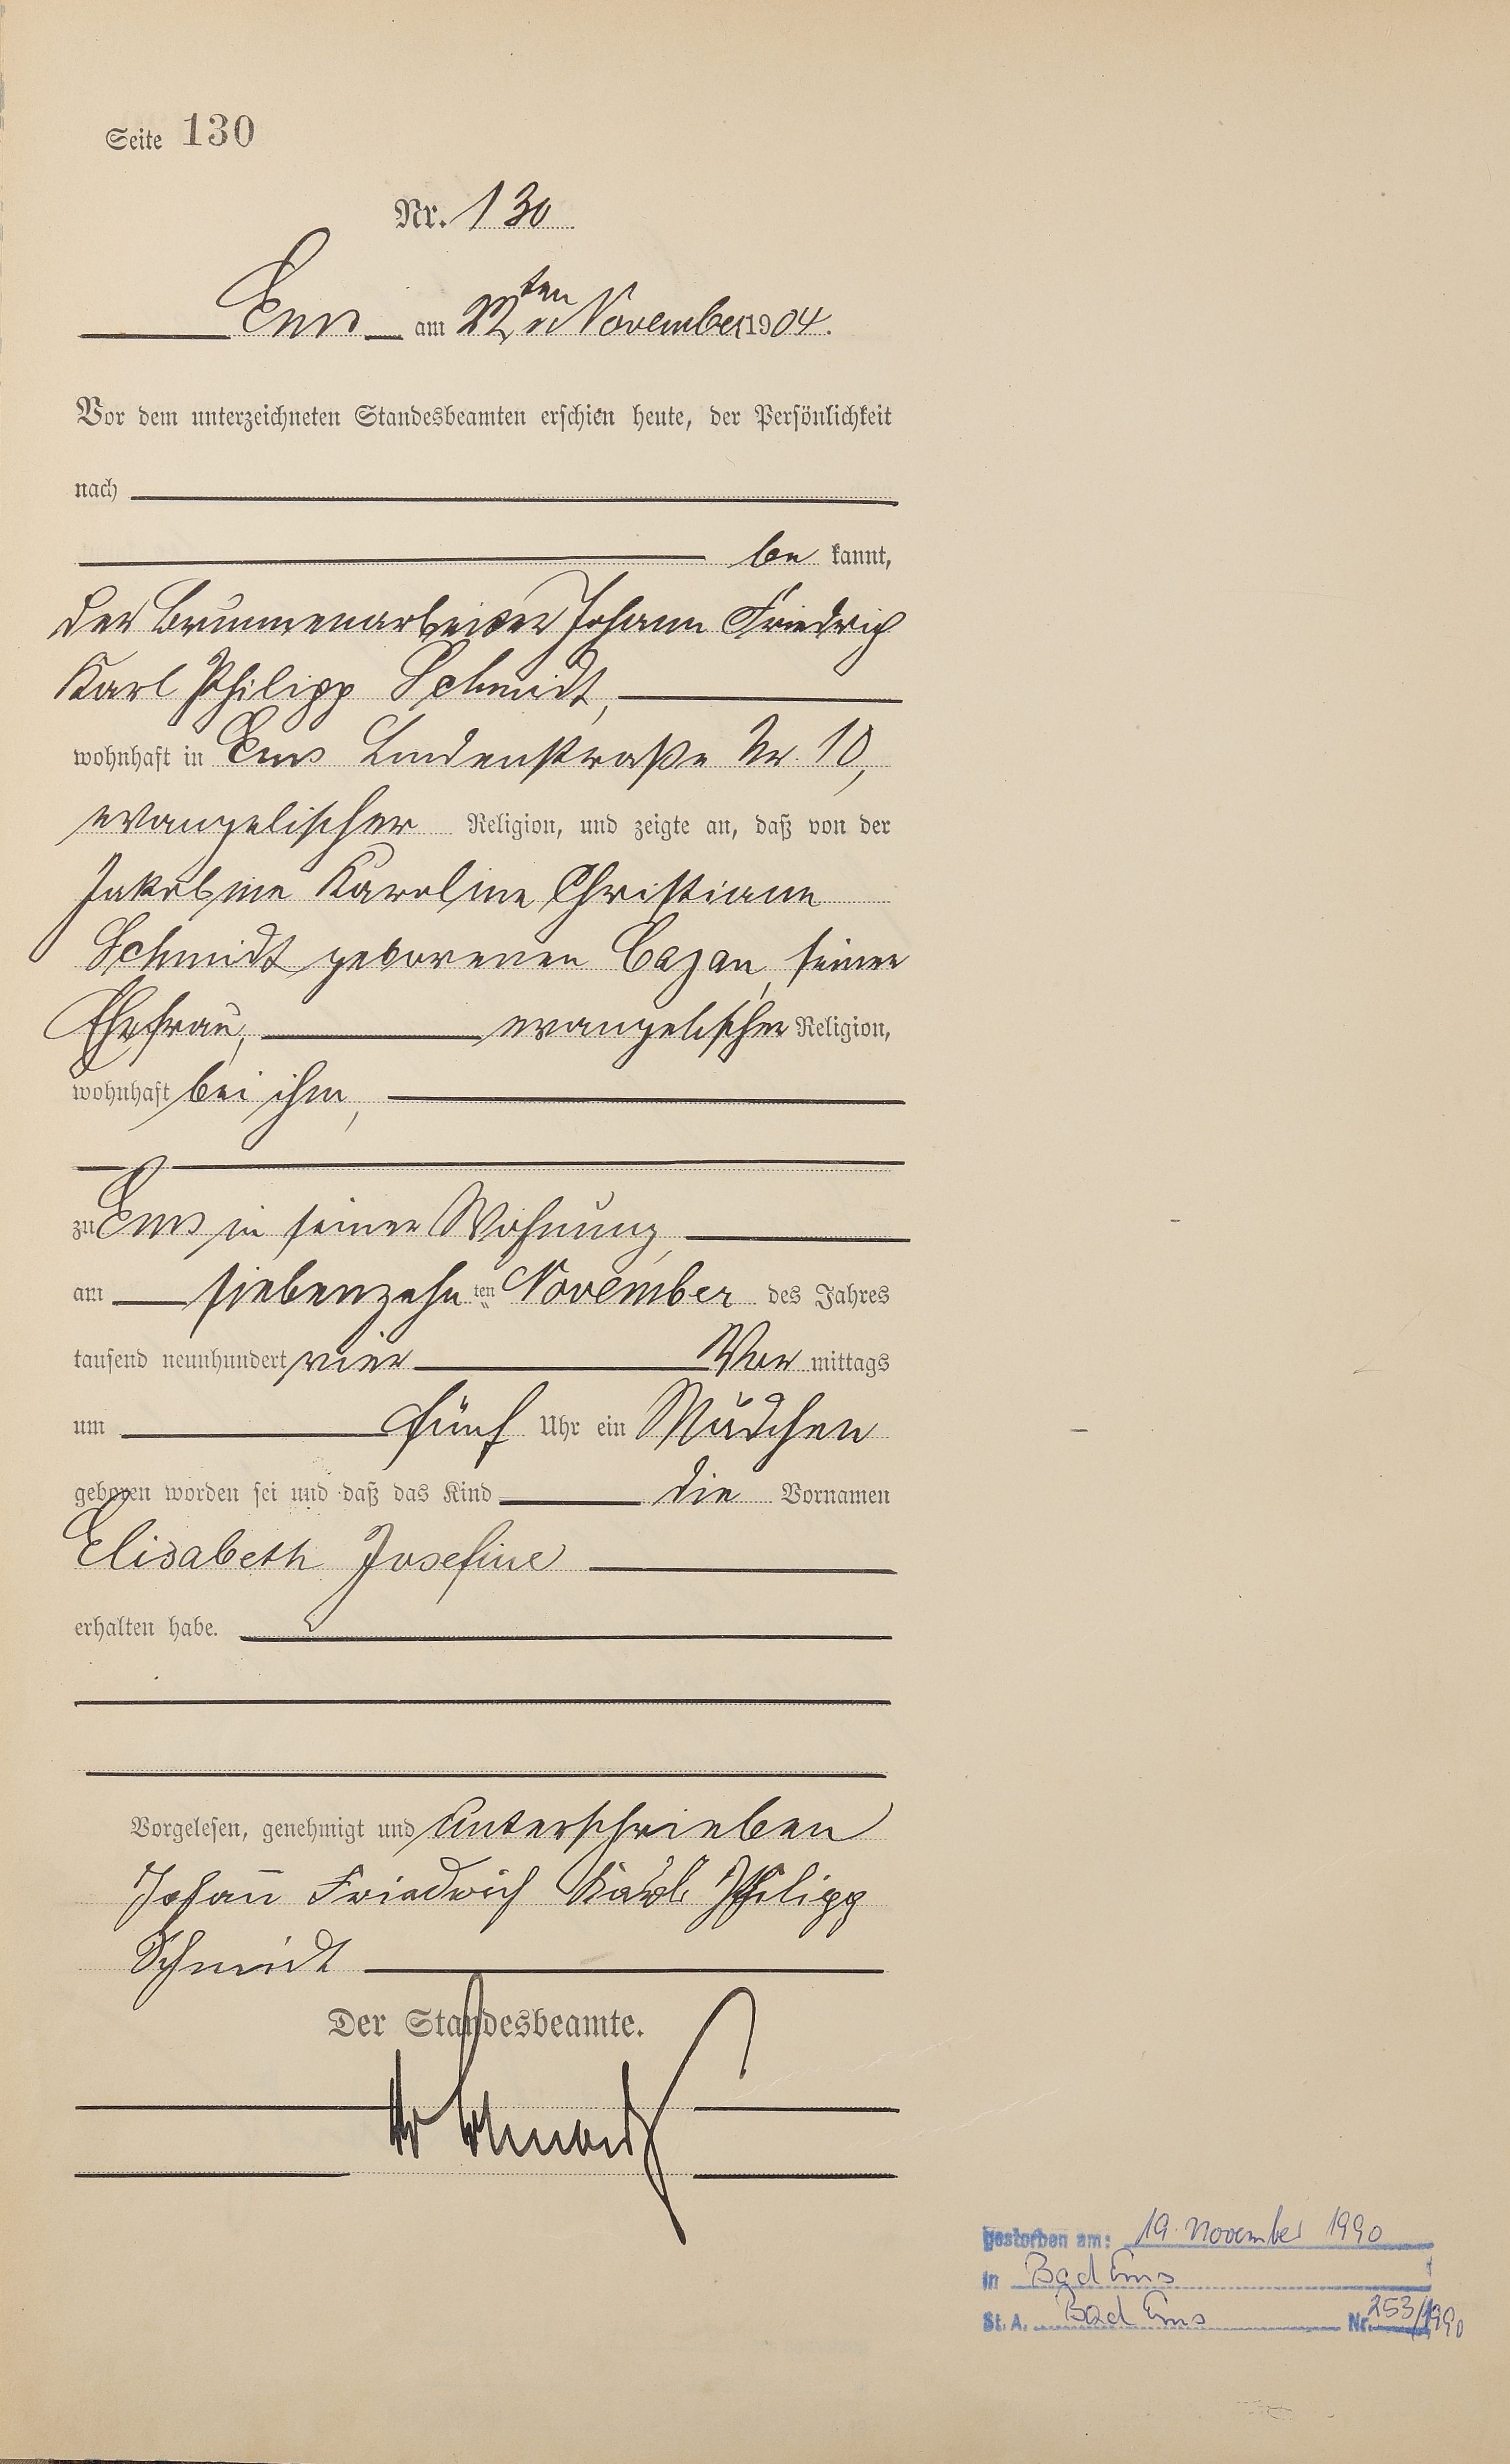 Seite 130
Nr. 130
Ems am 22ten November 1904.
Vor dem unterzeichneten Standesbeamten erschien heute, der Persönlichkeit
nach
be kannt,
der Brunnenarbeiter Johann Friedrich
Karl Philipp Schmidt,
wohnhaft in Ems Lindenstraße Nr. 10,
evangelischer Religion, und zeigte an, daß von der
Jakobine Karoline Christiane
Schmidt geborenen Cazan, seiner
Ehefrau, evangelischer Religion,
wohnhaft bei ihm,
zu Ems in seiner Wohnung,
am siebenzehn ten November des Jahres
tausend neunhundert vier Vor mittags
um fünf Uhr ein Mädchen
geboren worden sei und daß das Kind die Vornamen
Elisabeth Josefine
erhalten habe.
Vorgelesen, genehmigt und unterschrieben
Johan̄ Friedrich Karl Philipp
Schmidt
Der Standesbeamte.
gestorben am: 19. November 1990
in Bad Ems
St. A. Bad Ems Nr. 253/1990